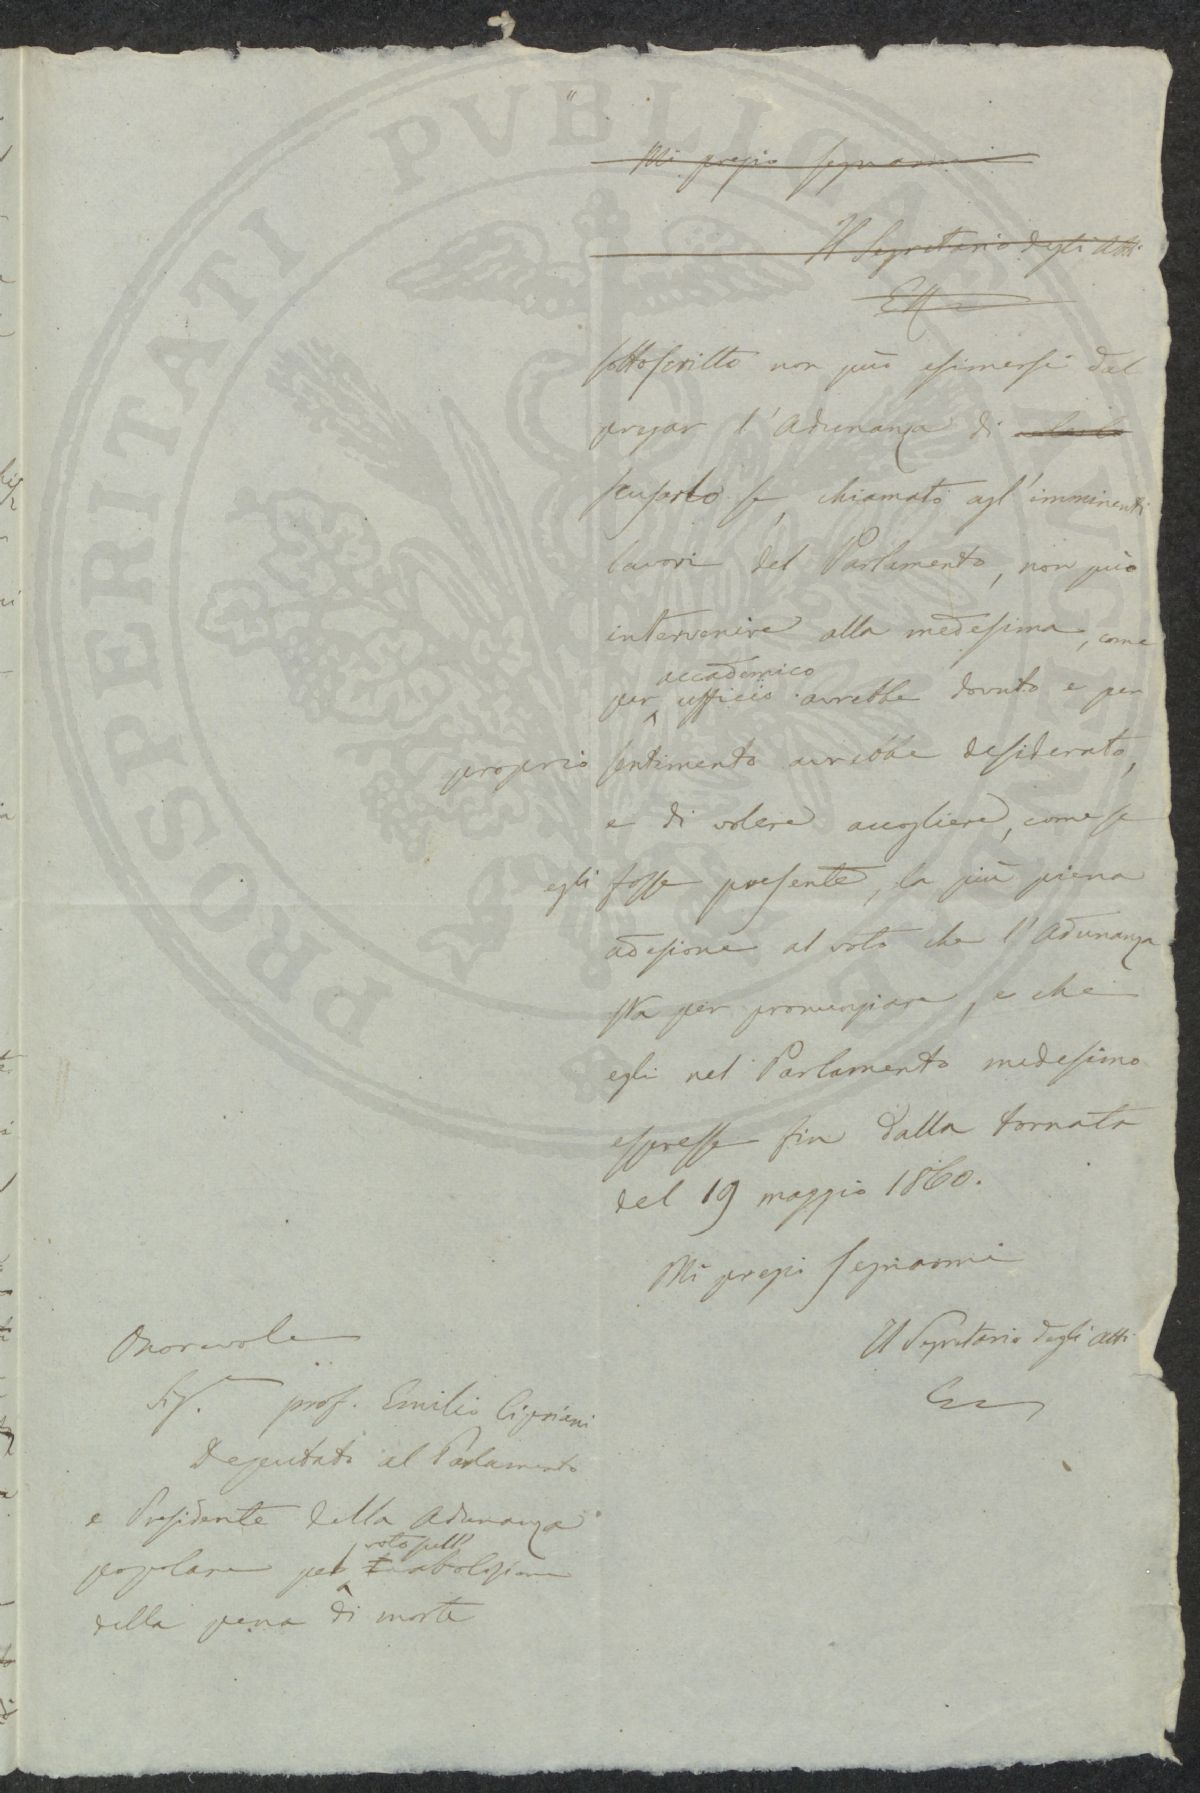 Mi pregio segnarmi
Il Segretario degli Atti
sottoscritto non può esimersi dal
pregar l'Adunanza di
scusarlo se, chiamato agl'imminenti
lavori del Parlamento, non può
intervenire alla medesima, come
per accademico ufficio avrebbe dovuto e per
proprio sentimento avrebbe desiderato,
e di volere accogliere, come se
egli fosse presente, la più piena
adesione al voto che l'Adunanza
sta per pronunziare, e che
egli nel Parlamento medesimo
espresse fin dalla tornata
del 19 maggio 1860.
Mi pregio segnarmi
Il Segretario degli Atti
Onorevole
Sig. prof. Emilio Cipriani
Deputato al Parlamento
e Presidente della Adunanza
popolare pel voto sull' abolizione
della pena di morte
PROSPERITATI PVBLICAE AVGENDAE